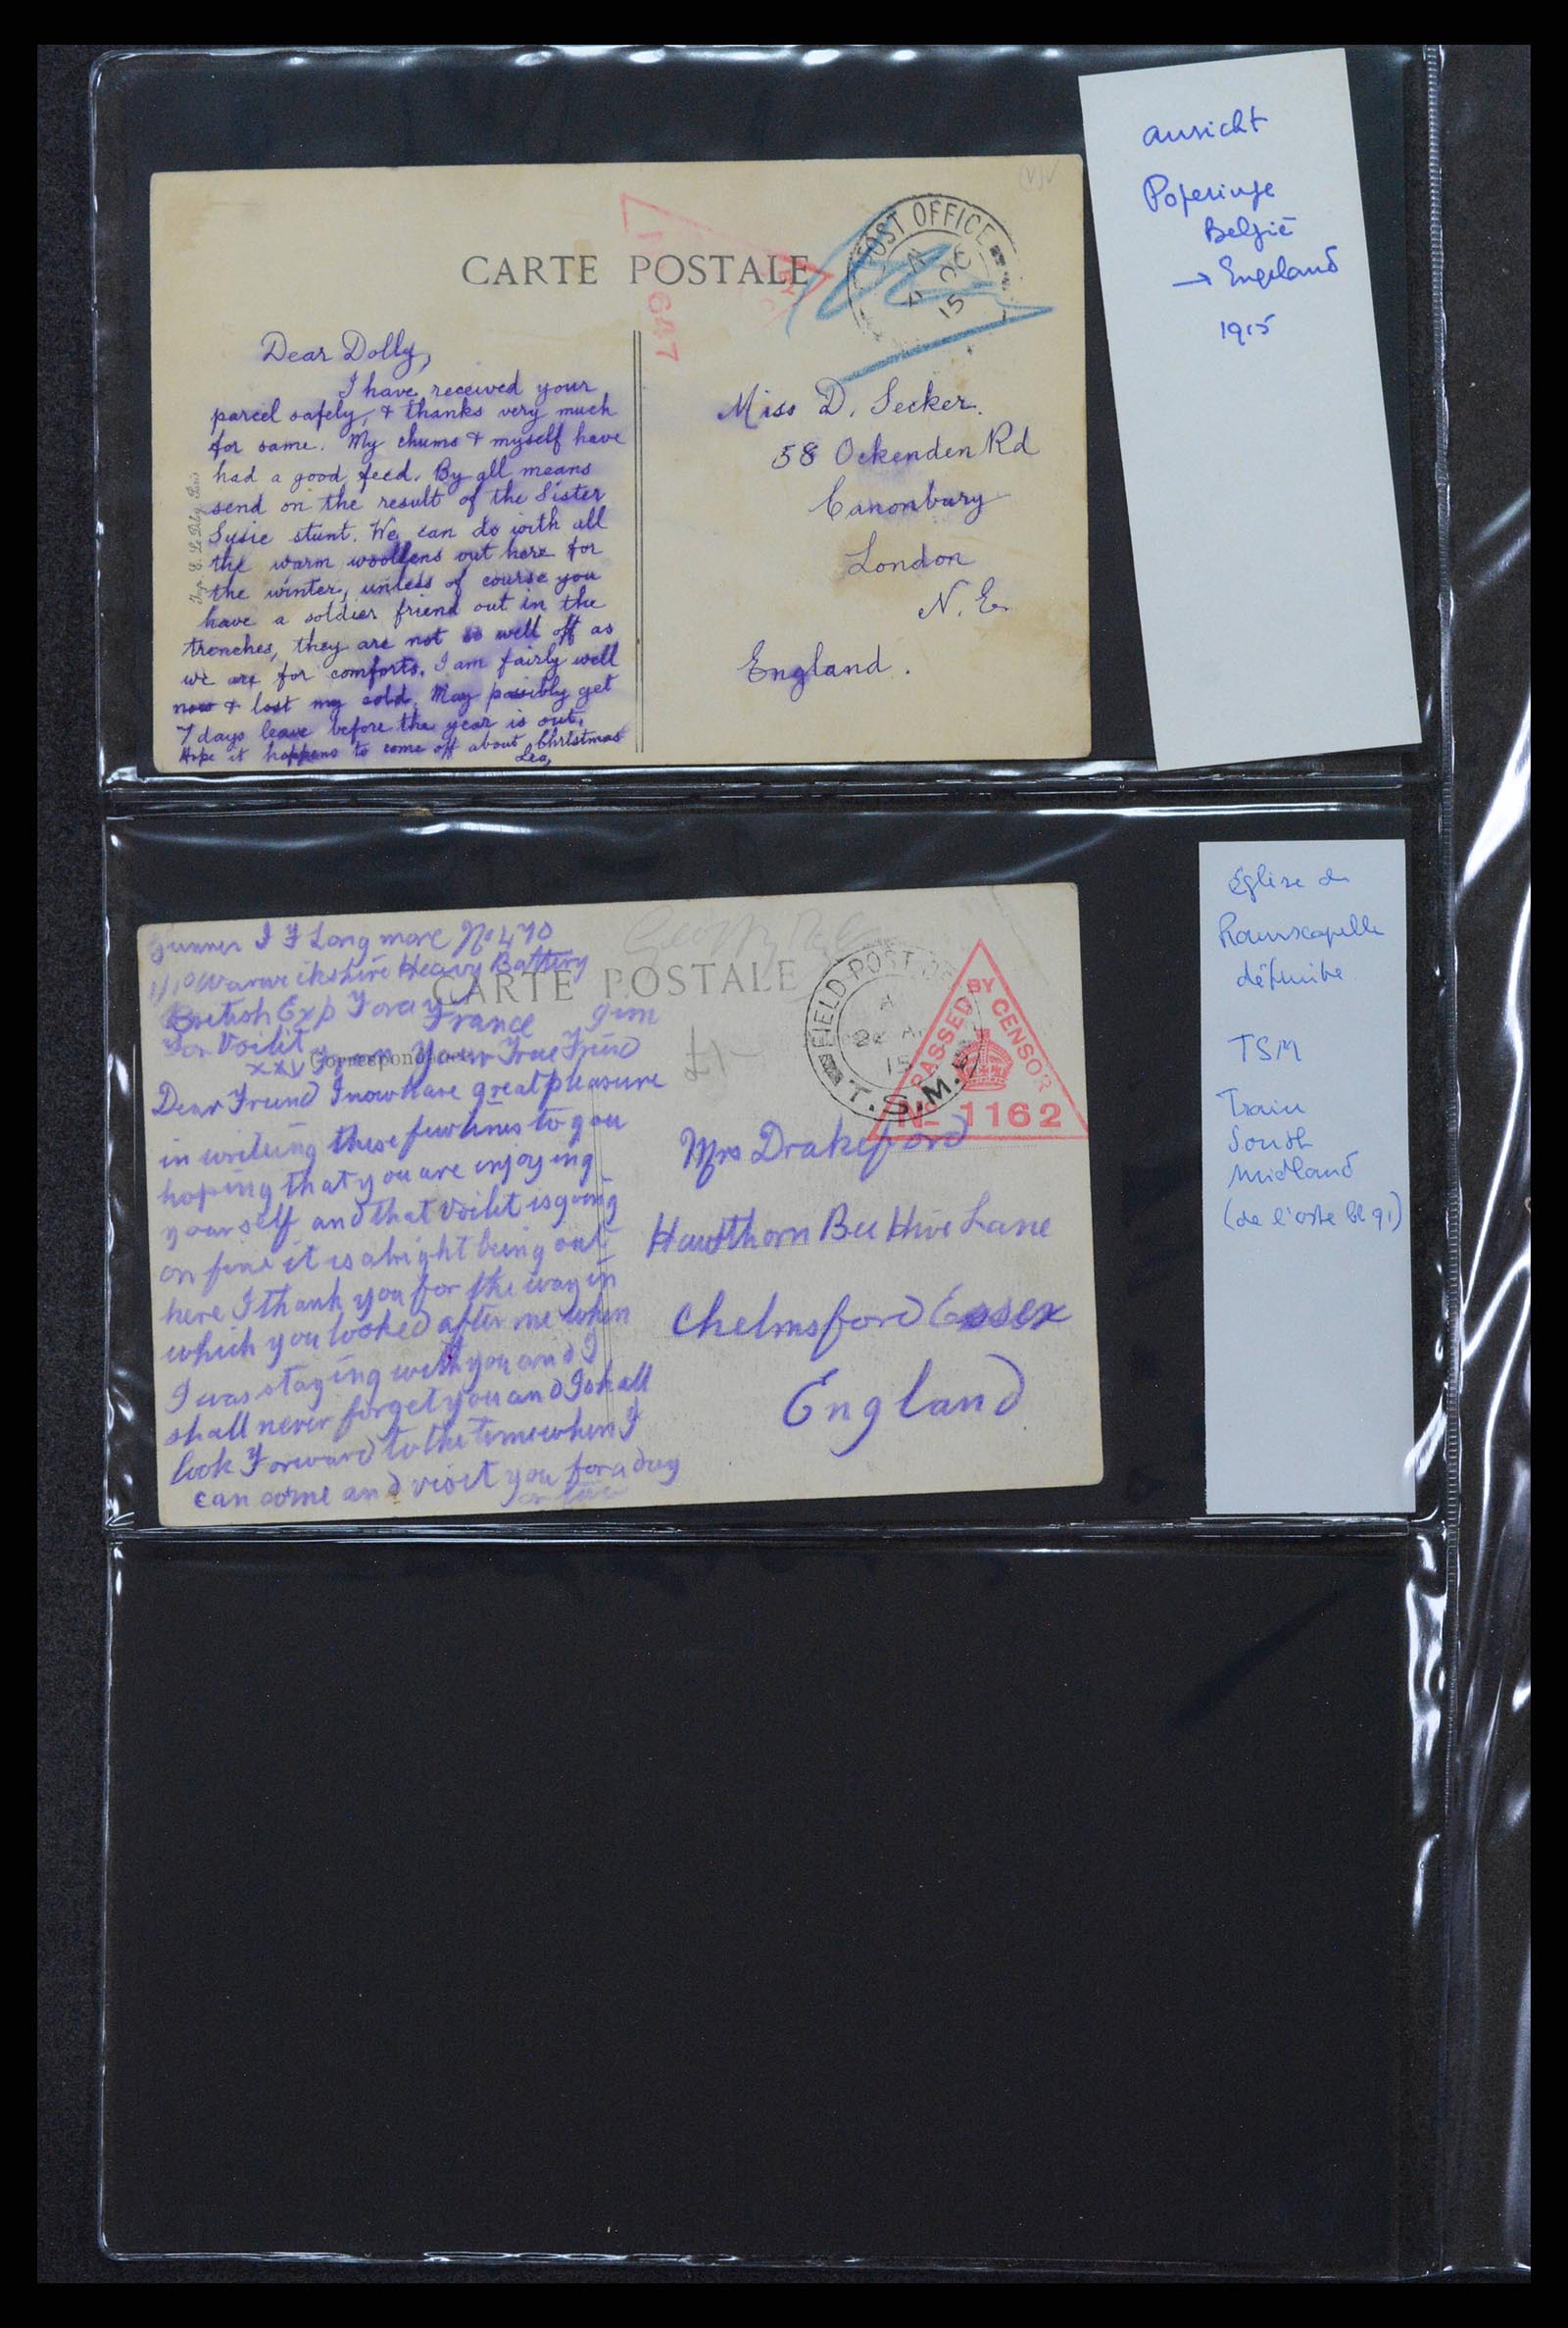 CARTE POSTALE
POST OFFICE
15
647
Dear Dolly,
I have received your
parcel safely, & thanks very much
for same. My chums & myself have
had a good feed. By all means
send on the result of the Sister
Susie stunt. We can do with all
the warm woollens out here for
the winter, unless of course you
have a soldier friend out in the
trenches, they are not so well off as
we are for comforts. I am fairly well
now & lost my cold. May possibly get
7 days leave before the year is out.
Hope it happens to come off about Christmas
Miss D. Secker.
58 Ockenden Rd
Canonbury
London
N. E.
England.
ansicht
Poperinge
België
→ Engeland
1915
Gunner J F Longmore No 470
Warwickshire Heavy Battery
British Exp Forcy
France Jim
For Voilit
xxx From Your True Friend
CARTE POSTALE
Correspondance
Dear Friend I now have great pleasure
in writing these few lines to you
hoping that you are enjoying
yourself and that Voilit is going
on fine it is alright being out
here I thank you for the way in
which you looked after me when
I was staying with you and I
shall never forget you and I shall
look Forward to the time when I
can come and visit you for a day
FIELD POST OF
A
15
T.S.M.
PASSED BY CENSOR
No 1162
£1-
Mrs Drakeford
Hawthorn Bee Hive Lane
Chelmsford Essex
England
église de
Ramscapelle
détruite
TSM
Train
South
Midland